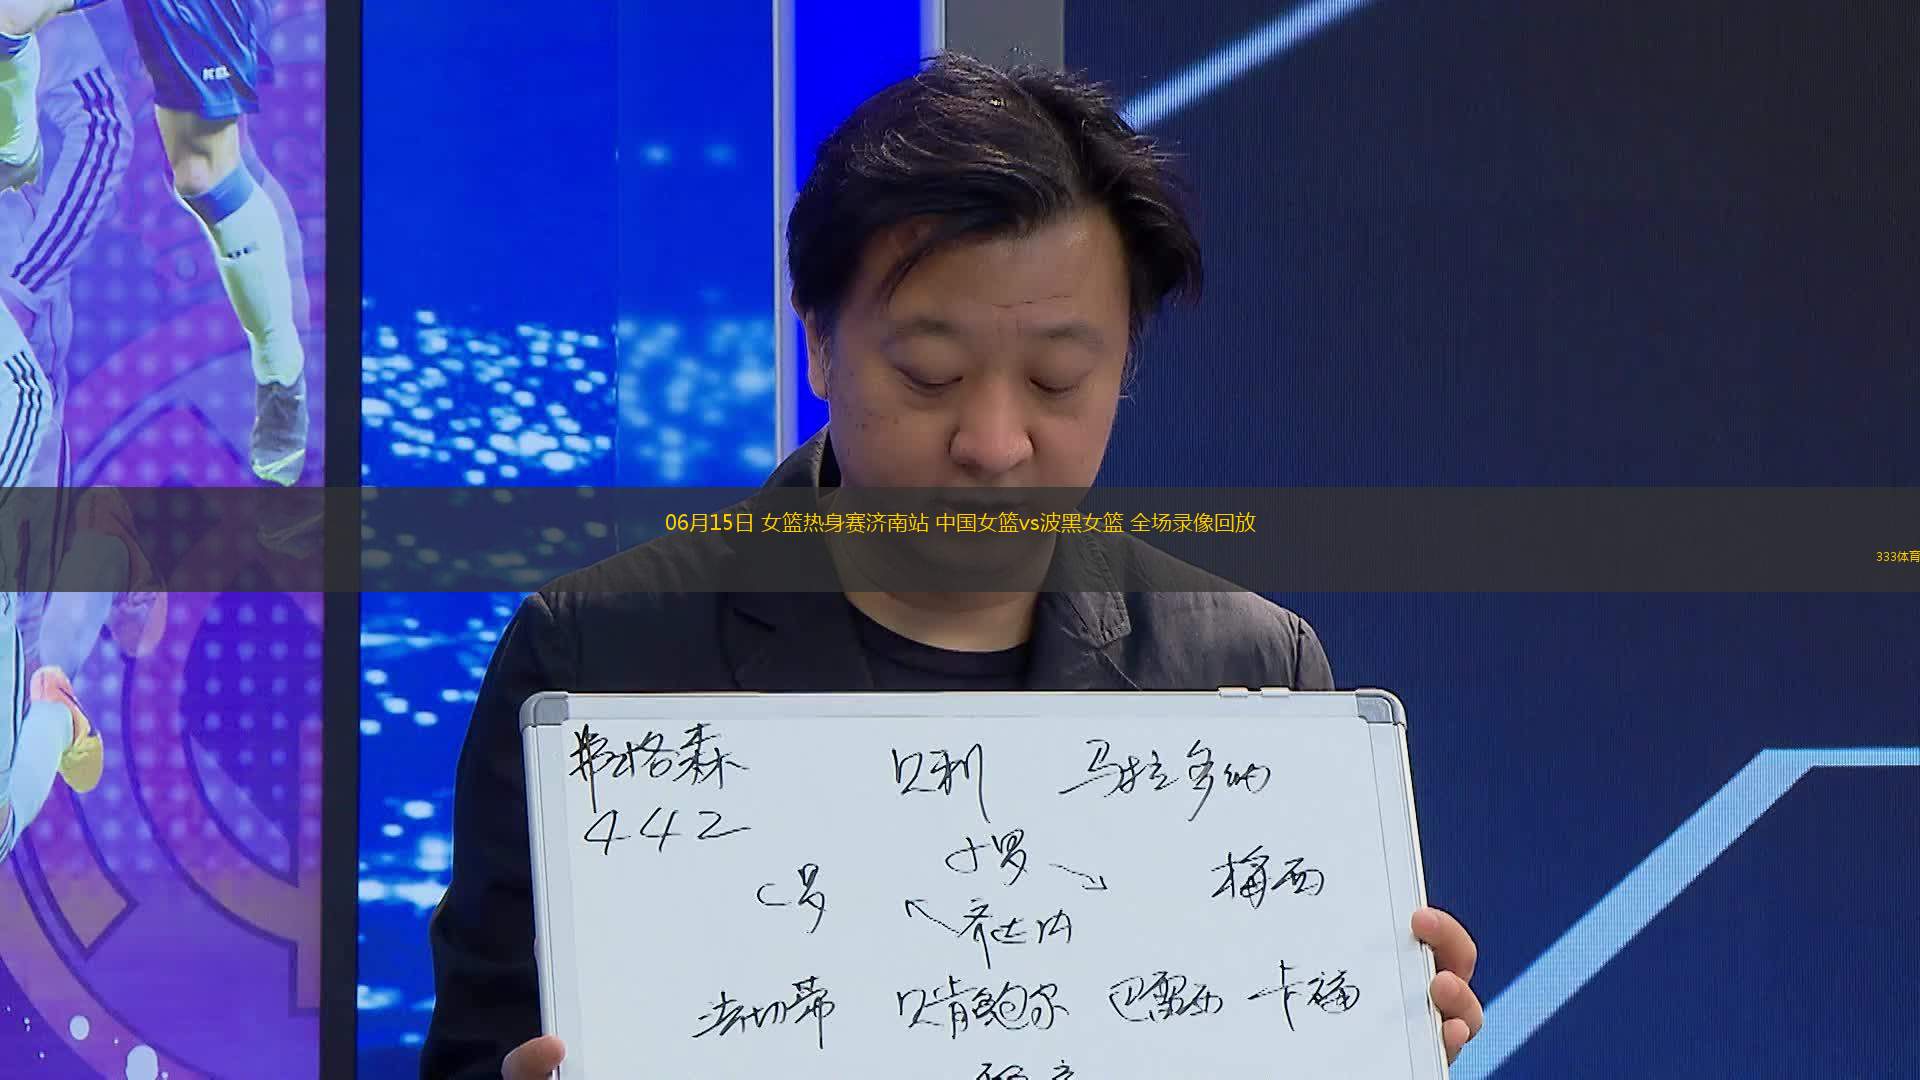 06月15日 女篮热身赛济南站 中国女篮vs波黑女篮 全场录像回放
333体育
弗格森 贝利 马拉多纳
442
小罗
C罗 梅西
齐达内
法切蒂 贝肯鲍尔 巴雷西 卡福